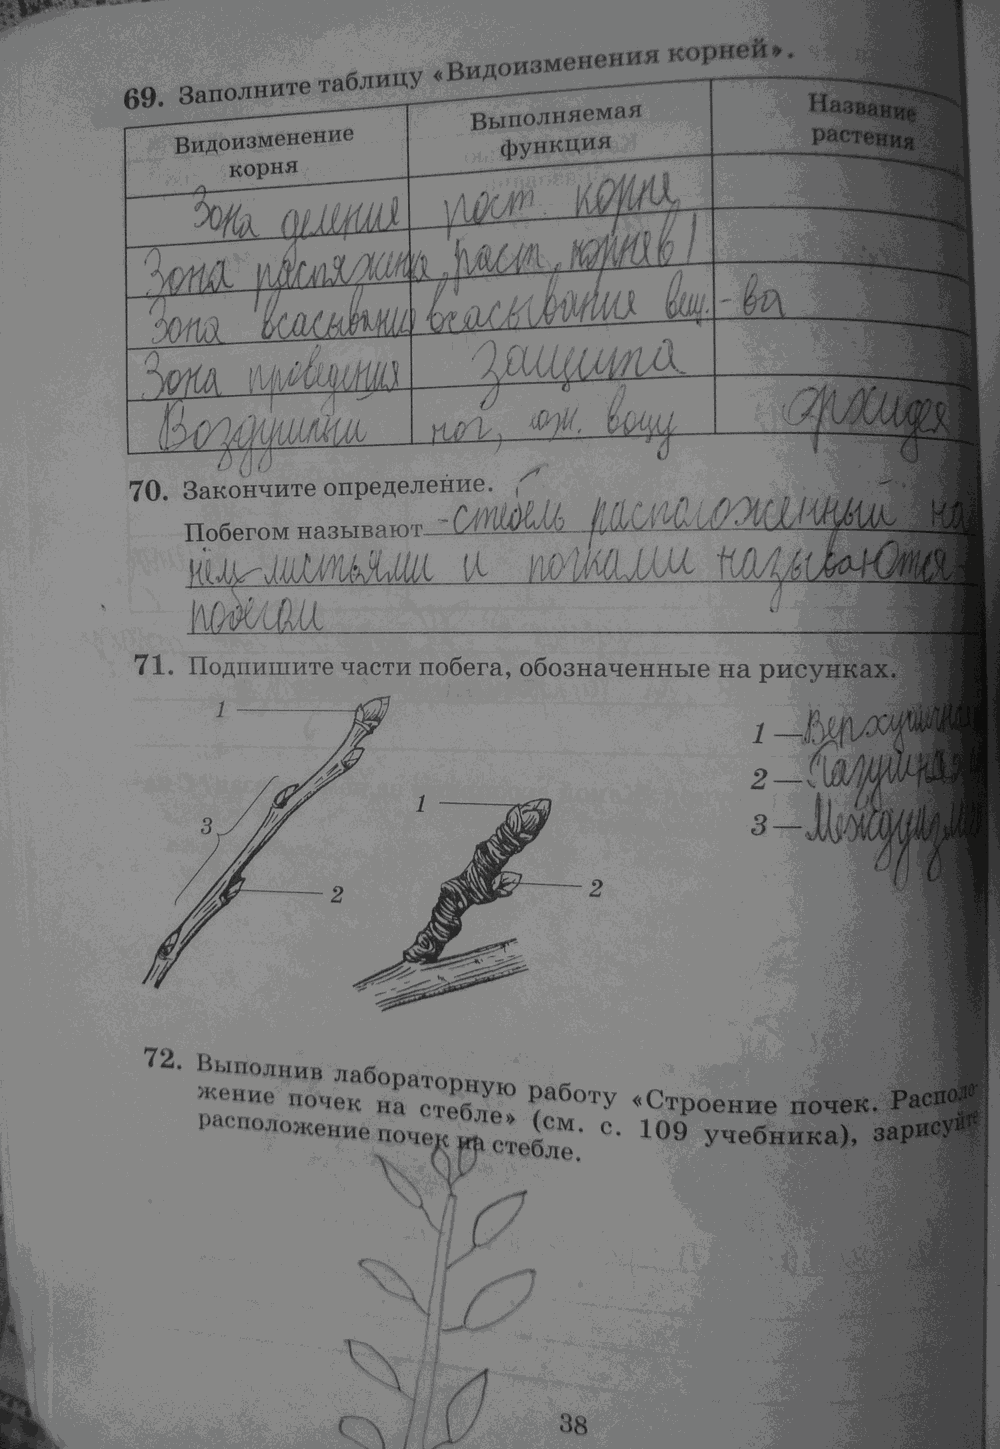 69. Заполните таблицу «Видоизменения корней».
Видоизменение корня
Выполняемая функция
Название растения
Зона деления рост корня
Зона растяжения раст. корнев
Зона всасывания всасывания вещ.-ва
Зона проведения защита
Воздушный пог, вощу орхидея
70. Закончите определение.
Побегом называют - стебель расположенный на
нём листьями и почками называются
побегом
71. Подпишите части побега, обозначенные на рисунках.
1
3
2
1
2
1 — Верхушечная
2 — Пазушная
3 —
72. Выполнив лабораторную работу «Строение почек. Располо-
жение почек на стебле» (см. с. 109 учебника), зарисуйте
расположение почек на стебле.
38